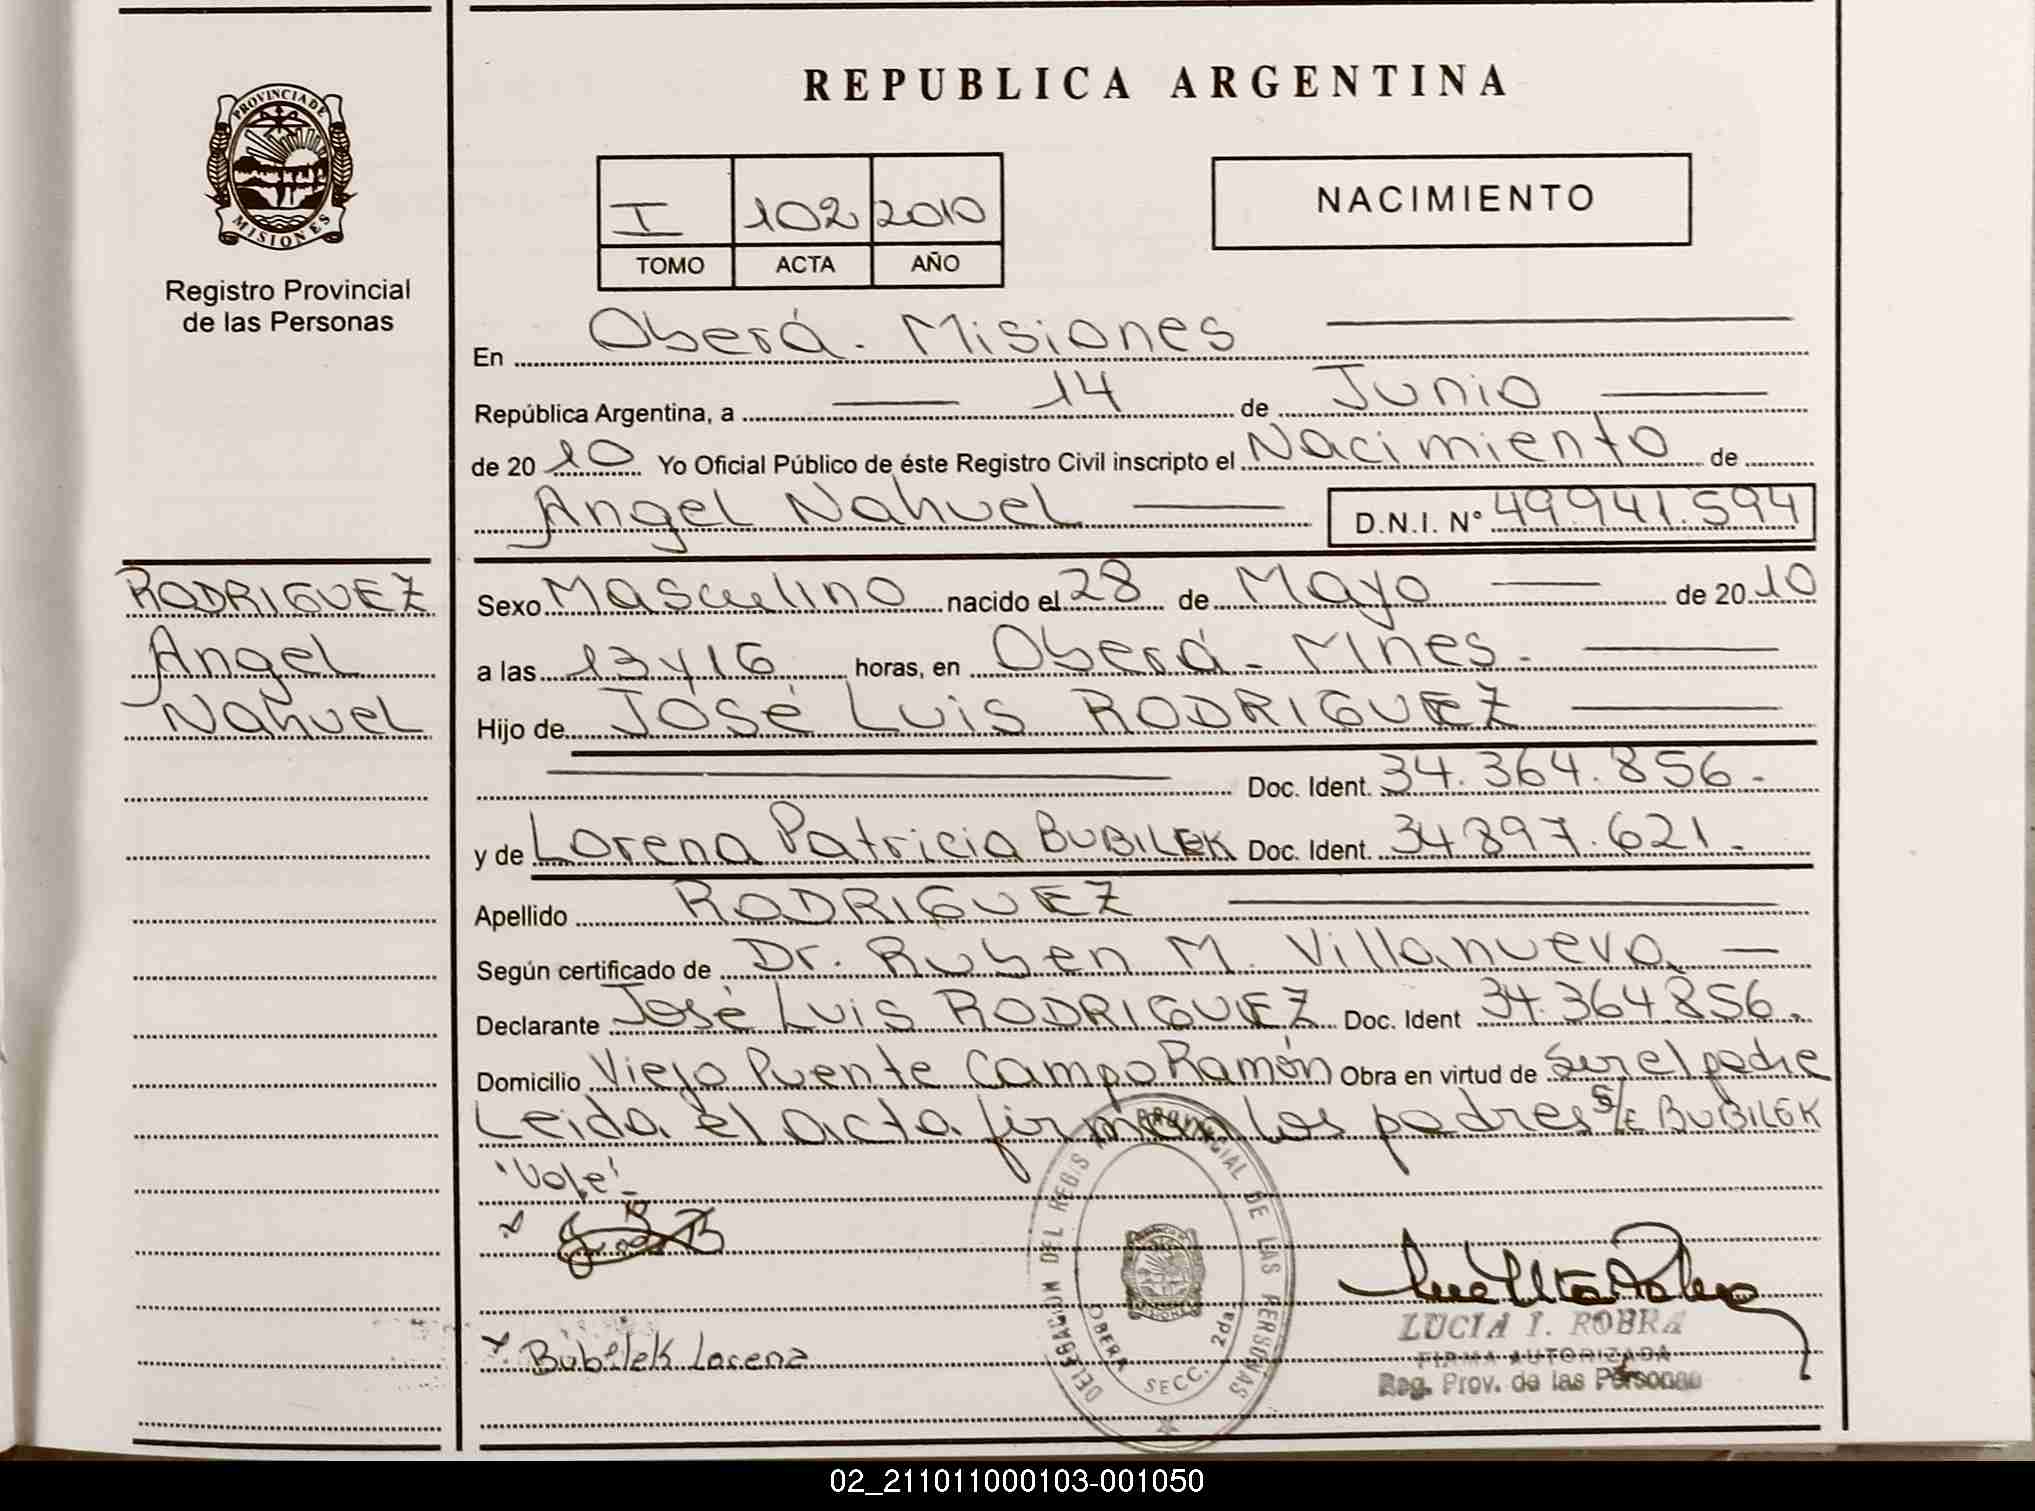 REPUBLICA ARGENTINA
PROVINCIA DE
MISIONES
Registro Provincial
de las Personas
I 102 2010
TOMO ACTA AÑO
NACIMIENTO
En Oberá - Misiones
República Argentina, a 14 de Junio
de 2010 Yo Oficial Público de éste Registro Civil inscripto el Nacimiento de
Angel Nahuel D.N.I. N° 49.941.594
RODRIGUEZ
Angel
Nahuel
Sexo Masculino nacido el 28 de Mayo de 2010
a las 13 y 16 horas, en Oberá - Mnes.
Hijo de José Luis RODRIGUEZ
Doc. Ident. 34.364.856.-
y de Lorena Patricia BUBILEK Doc. Ident. 34897.621.-
Apellido RODRIGUEZ
Según certificado de Dr. Ruben M. Villanueva
Declarante José Luis RODRIGUEZ Doc. Ident 34.364856.
Domicilio Viejo Puente Campo Ramón Obra en virtud de ser el padre
Leida el acta firman los padres s/E BUBILEK
"Vale"-
x
x Bubilek Lorena
DELEGACION DEL REGIS PROVINCIAL DE LAS PERSONAS
OBERA SECC. 2da
LUCIA I. ROBRA
FIRMA AUTORIZADA
Reg. Prov. de las Personas
02_211011000103-001050